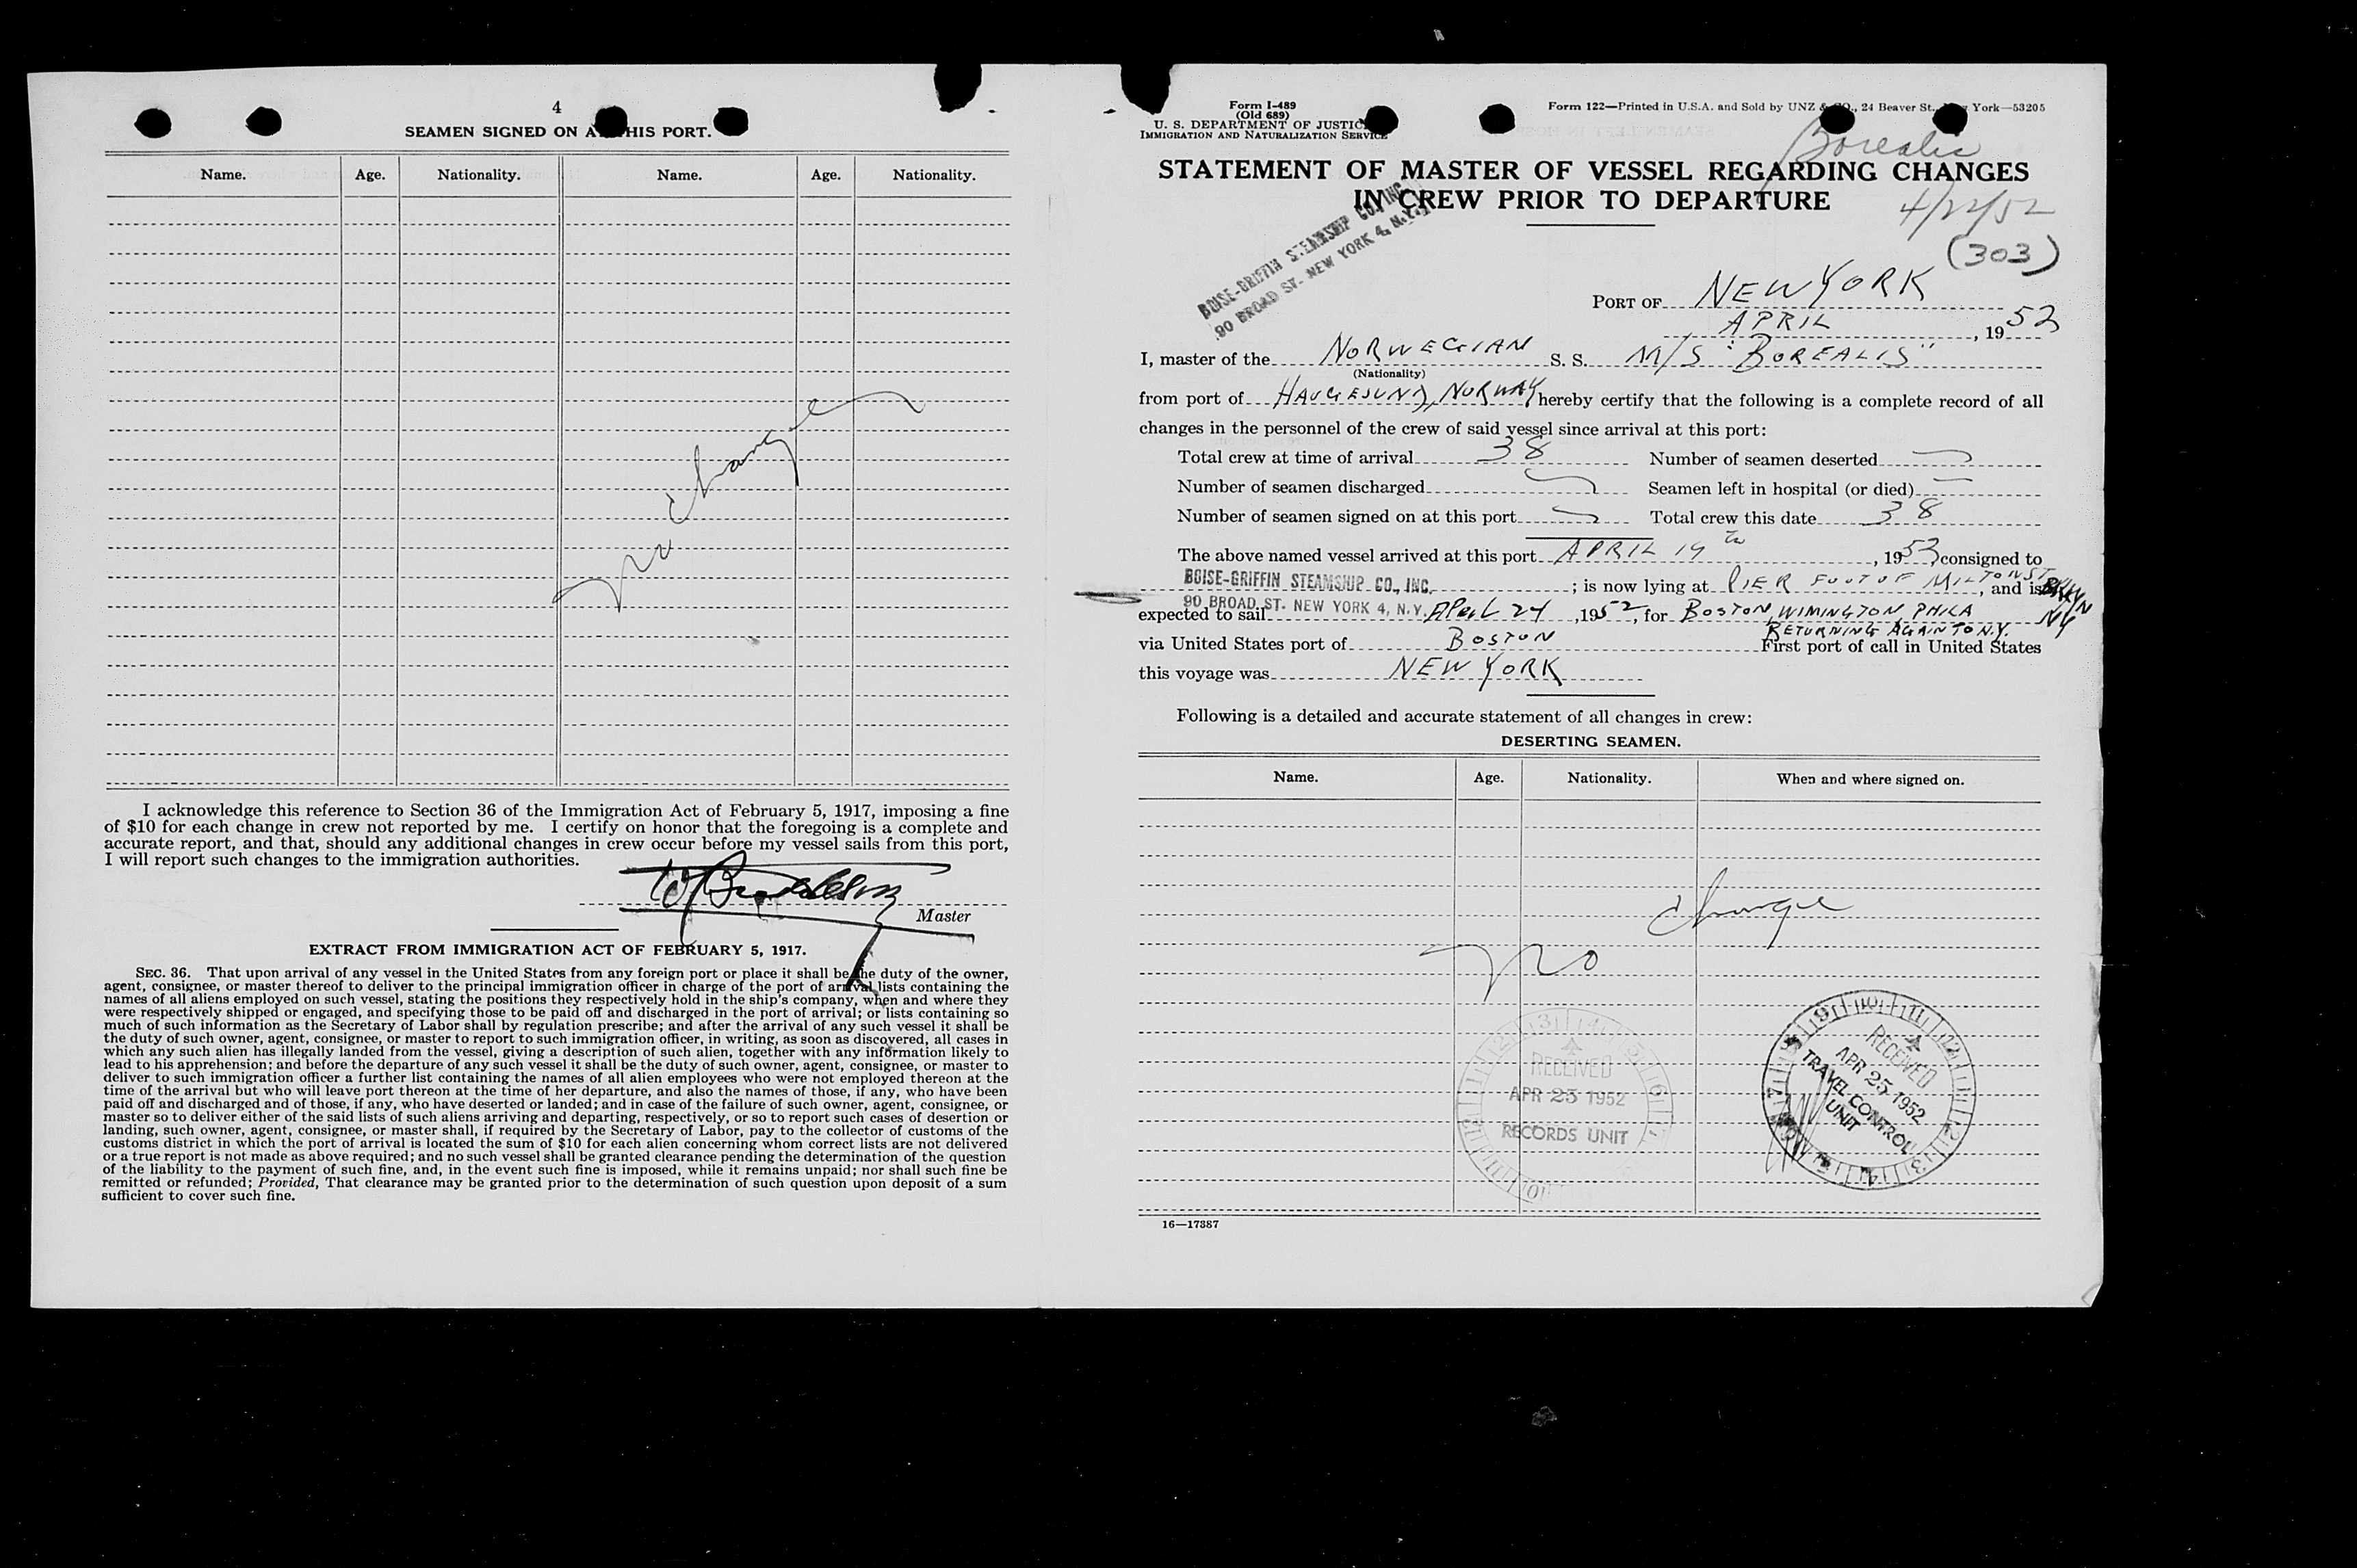 4
SEAMEN SIGNED ON AT THIS PORT.
Name. Age. Nationality. Name. Age. Nationality.
no change
I acknowledge this reference to Section 36 of the Immigration Act of February 5, 1917, imposing a fine
of $10 for each change in crew not reported by me. I certify on honor that the foregoing is a complete and
accurate report, and that, should any additional changes in crew occur before my vessel sails from this port,
I will report such changes to the immigration authorities.
Master
EXTRACT FROM IMMIGRATION ACT OF FEBRUARY 5, 1917.
SEC. 36. That upon arrival of any vessel in the United States from any foreign port or place it shall be the duty of the owner,
agent, consignee, or master thereof to deliver to the principal immigration officer in charge of the port of arrival lists containing the
names of all aliens employed on such vessel, stating the positions they respectively hold in the ship's company, when and where they
were respectively shipped or engaged, and specifying those to be paid off and discharged in the port of arrival; or lists containing so
much of such information as the Secretary of Labor shall by regulation prescribe; and after the arrival of any such vessel it shall be
the duty of such owner, agent, consignee, or master to report to such immigration officer, in writing, as soon as discovered, all cases in
which any such alien has illegally landed from the vessel, giving a description of such alien, together with any information likely to
lead to his apprehension; and before the departure of any such vessel it shall be the duty of such owner, agent, consignee, or master to
deliver to such immigration officer a further list containing the names of all alien employees who were not employed thereon at the
time of the arrival but who will leave port thereon at the time of her departure, and also the names of those, if any, who have been
paid off and discharged and of those, if any, who have deserted or landed; and in case of the failure of such owner, agent, consignee, or
master so to deliver either of the said lists of such aliens arriving and departing, respectively, or so to report such cases of desertion or
landing, such owner, agent, consignee, or master shall, if required by the Secretary of Labor, pay to the collector of customs of the
customs district in which the port of arrival is located the sum of $10 for each alien concerning whom correct lists are not delivered
or a true report is not made as above required; and no such vessel shall be granted clearance pending the determination of the question
of the liability to the payment of such fine, and, in the event such fine is imposed, while it remains unpaid; nor shall such fine be
remitted or refunded; Provided, That clearance may be granted prior to the determination of such question upon deposit of a sum
sufficient to cover such fine.
Form I-489
(Old 689)
U. S. DEPARTMENT OF JUSTICE
IMMIGRATION AND NATURALIZATION SERVICE
Form 122—Printed in U.S.A. and Sold by UNZ & CO., 24 Beaver St., New York—53205
Borealis
STATEMENT OF MASTER OF VESSEL REGARDING CHANGES
IN CREW PRIOR TO DEPARTURE
4/22/52
(303)
BOISE-GRIFFIN STEAMSHIP CO., INC.
90 BROAD ST. NEW YORK 4, N.Y.
PORT OF NEW YORK
APRIL, 1952
I, master of the NORWEGIAN S. S. M/S "BOREALIS"
(Nationality)
from port of HAUGESUND, NORWAY hereby certify that the following is a complete record of all
changes in the personnel of the crew of said vessel since arrival at this port:
Total crew at time of arrival 38 Number of seamen deserted
Number of seamen discharged Seamen left in hospital (or died)
Number of seamen signed on at this port Total crew this date 38
The above named vessel arrived at this port APRIL 19th, 1952, consigned to
BOISE-GRIFFIN STEAMSHIP CO., INC. ; is now lying at PIER FOOT OF MILTON ST, and is BKLYN
90 BROAD ST. NEW YORK 4, N.Y.
expected to sail April 24, 1952, for BOSTON, WIMINGTON, PHILA NY
RETURNING AGAIN TO N.Y.
via United States port of BOSTON First port of call in United States
this voyage was NEW YORK
Following is a detailed and accurate statement of all changes in crew:
DESERTING SEAMEN.
Name. Age. Nationality. When and where signed on.
no change
RECEIVED
APR 25 1952
RECORDS UNIT
RECEIVED
APR 25 1952
TRAVEL CONTROL
UNIT
16—17387